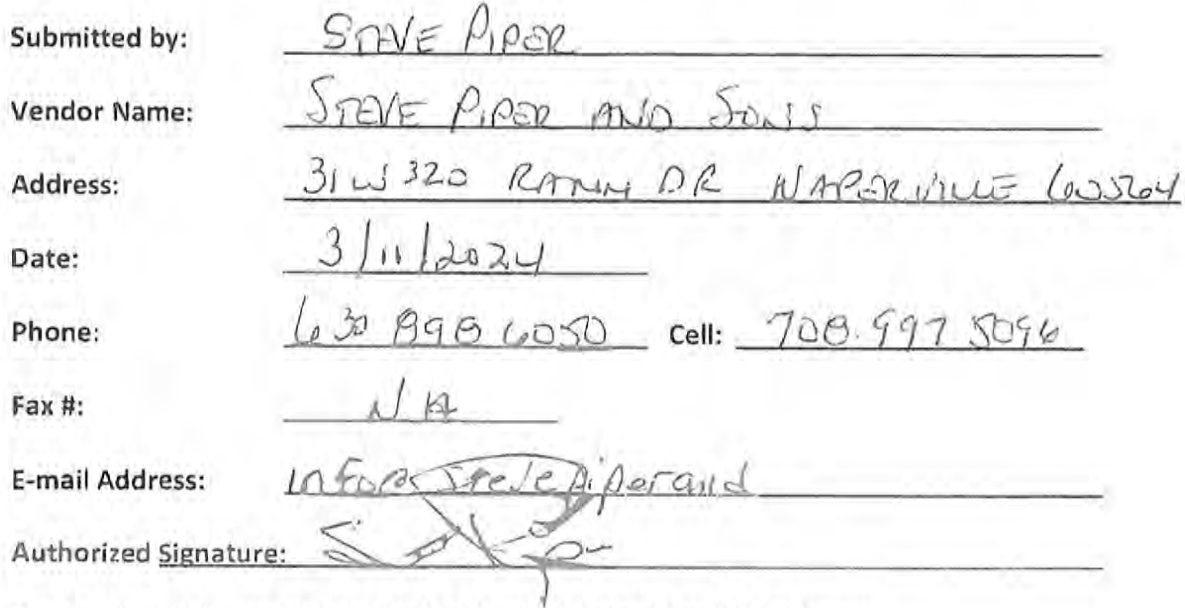 Submitted by: STEVE PIPER
Vendor Name: STEVE PIPER AND SONS
Address: 31W320 RAMM DR NAPERVILLE 60564
Date: 3/11/2024
Phone: 630 898 6050 Cell: 708.997.5096
Fax #: NA
E-mail Address: info@stevepiperand
Authorized Signature: